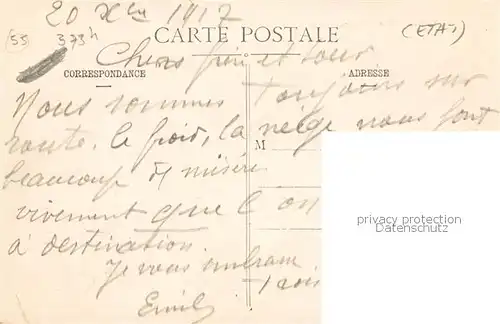 20 Xbre 1917
(55)
373h
(ETAT)
CARTE POSTALE
Chers frère et soeur
CORRESPONDANCE
ADRESSE
Nous sommes toujours sur
route. le froid, la neige nous font
M
beaucoup de misère
vivement que l on
à destination.
Je vous embrasse
trois
Emile
privacy protection
Datenschutz